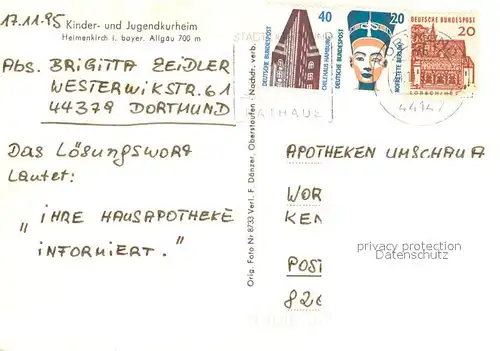 17.11.95
Kinder- und Jugendkurheim
Heimenkirch i. bayer. Allgäu 700 m
Abs. BRIGITTA ZEIDLER
WESTERWIKSTR. 61
44379 DORTMUND
DAS LÖSUNGSWORT
LAUTET:
„IHRE HAUSAPOTHEKE
INFORMIERT."
Orig. Foto Nr 8733 Verl. F. Dänzer, Oberstaufen - Nachdr. verb.
40
DEUTSCHE BUNDESPOST
CHILEHAUS HAMBURG
20
DEUTSCHE BUNDESPOST
NOFRETETE BERLIN
DEUTSCHE BUNDESPOST
20
LORSCH/HESSEN
44147
APOTHEKEN UMSCHAU A
WOR
KEN
POST
826
privacy protection
Datenschutz